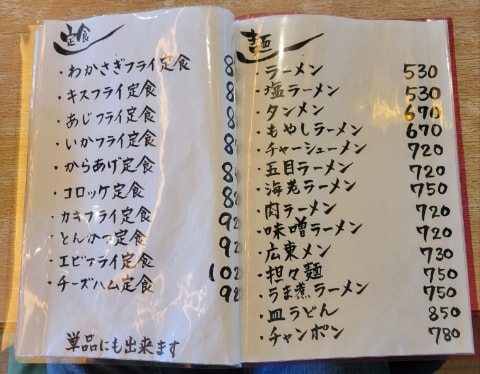 定食
・わかさぎフライ定食 8
・キスフライ定食 8
・あじフライ定食 8
・いかフライ定食 8
・からあげ定食 8
・コロッケ定食 8
・カキフライ定食 9
・とんかつ定食 9
・エビフライ定食 10
・チーズハム定食 9
単品にも出来ます
麺
・ラーメン 530
・塩ラーメン 530
・タンメン 670
・もやしラーメン 670
・チャーシューメン 720
・五目ラーメン 720
・海老ラーメン 750
・肉ラーメン 720
・味噌ラーメン 720
・広東メン 730
・担々麺 750
・うま煮ラーメン 750
・皿うどん 850
・チャンポン 780